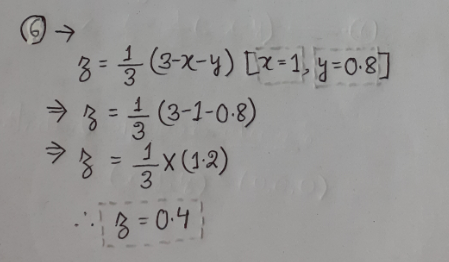 ⑥ →
z = 1/3 (3-x-y) [x=1, y=0.8]
⇒ z = 1/3 (3-1-0.8)
⇒ z = 1/3 × (1.2)
∴ z = 0.4